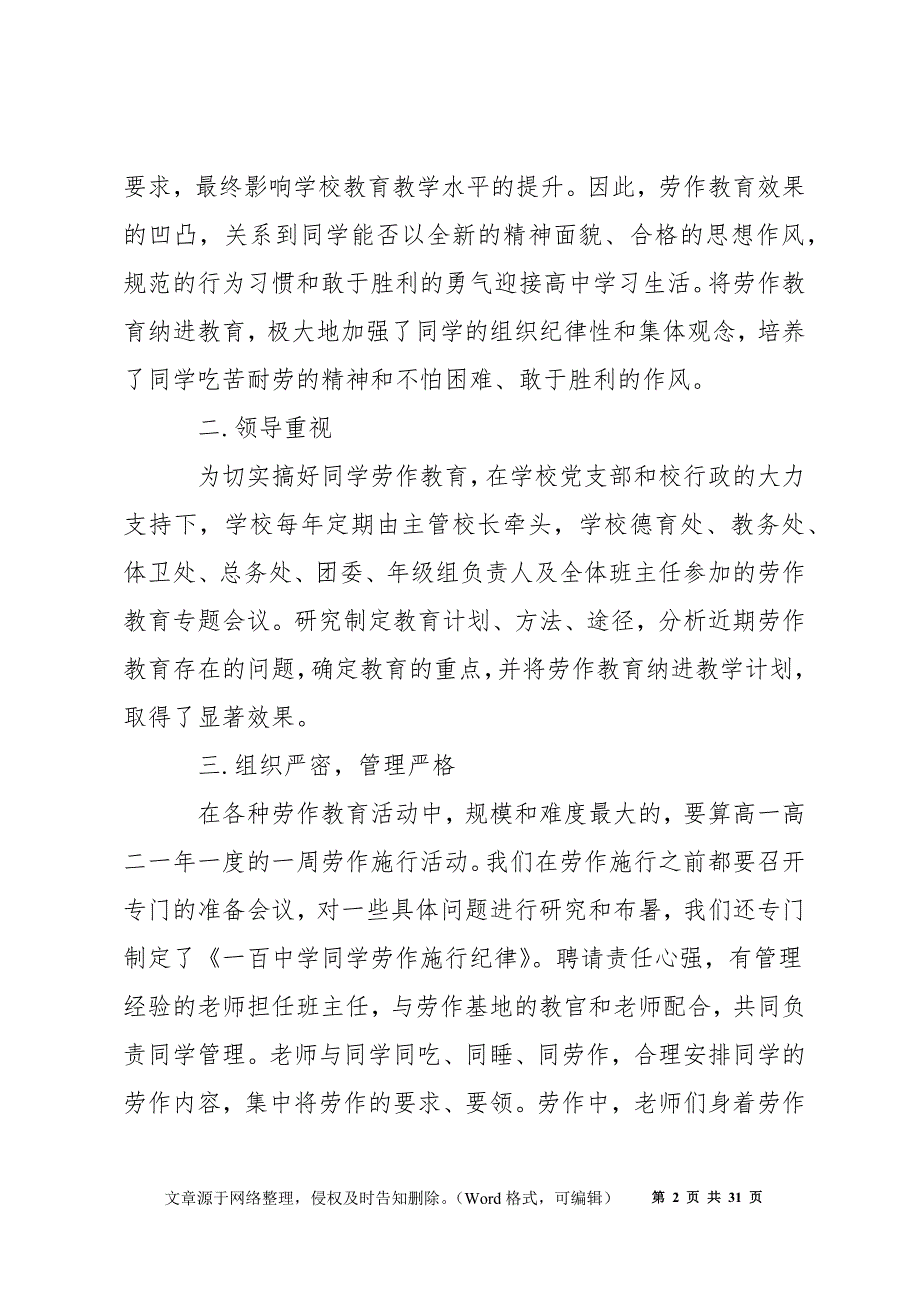 要求，最终影响学校教育教学水平的提升。因此，劳作教育效果
的凹凸，关系到同学能否以全新的精神面貌、合格的思想作风，
规范的行为习惯和敢于胜利的勇气迎接高中学习生活。将劳作教
育纳进教育，极大地加强了同学的组织纪律性和集体观念，培养
了同学吃苦耐劳的精神和不怕困难、敢于胜利的作风。
二.领导重视
为切实搞好同学劳作教育，在学校党支部和校行政的大力
支持下，学校每年定期由主管校长牵头，学校德育处、教务处、
体卫处、总务处、团委、年级组负责人及全体班主任参加的劳作
教育专题会议。研究制定教育计划、方法、途径，分析近期劳作
教育存在的问题，确定教育的重点，并将劳作教育纳进教学计划，
取得了显著效果。
三.组织严密，管理严格
在各种劳作教育活动中，规模和难度最大的，要算高一高
二一年一度的一周劳作施行活动。我们在劳作施行之前都要召开
专门的准备会议，对一些具体问题进行研究和布暑，我们还专门
制定了《一百中学同学劳作施行纪律》。聘请责任心强，有管理
经验的老师担任班主任，与劳作基地的教官和老师配合，共同负
责同学管理。老师与同学同吃、同睡、同劳作，合理安排同学的
劳作内容，集中将劳作的要求、要领。劳作中，老师们身着劳作
文章源于网络整理，侵权及时告知删除。（Word 格式，可编辑） 第 2 页 共 31 页